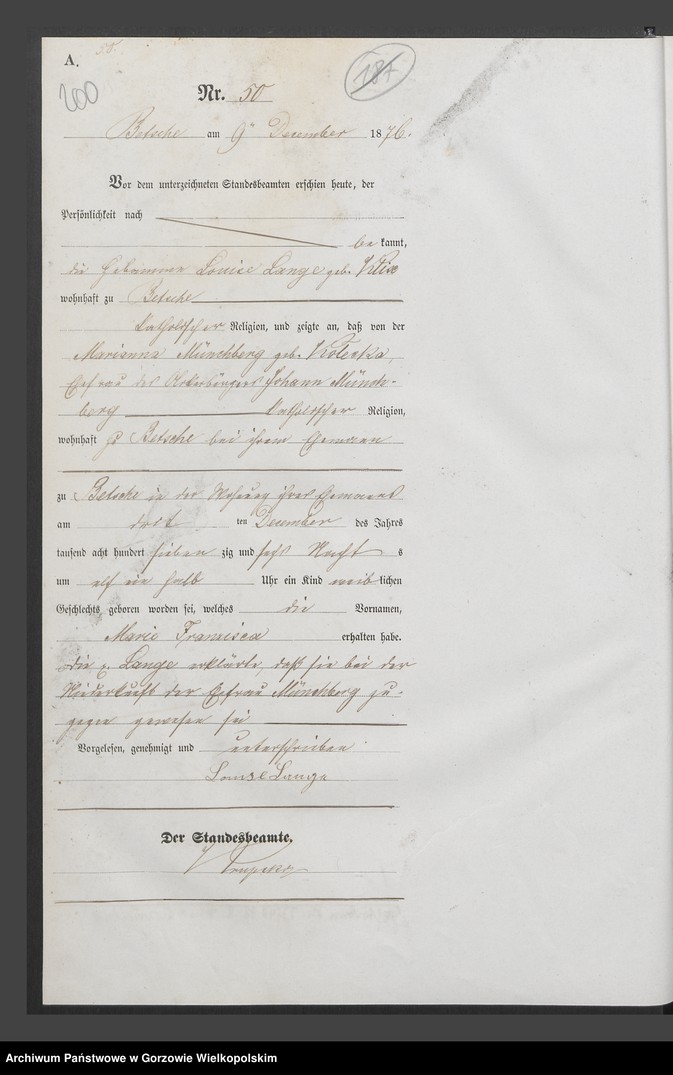 50
A.
200
187
Nr. 50
Betsche am 9ⁿ December 1876.
Vor dem unterzeichneten Standesbeamten erschien heute, der
Persönlichkeit nach
be kannt,
die Hebamme Louise Lange geb. Klix
wohnhaft zu Betsche
katholischer Religion, und zeigte an, daß von der
Marianna Münchberg geb.
Ehefrau des Ackerbürgers Johann Münch-
berg katholischer Religion,
wohnhaft zu Betsche bei ihrem Ehemann
zu Betsche in der Wohnung ihres Ehemanns
am drit ten December des Jahres
tausend acht hundert sieben zig und sechs Nacht s
um elf ein halb Uhr ein Kind weib lichen
Geschlechts, geboren worden sei, welches die Vornamen,
Marie Franzisca erhalten habe.
Die p. Lange erklärte, daß sie bei der
Niederkunft der Ehefrau Münchberg zu-
gegen gewesen sei
Vorgelesen, genehmigt und unterschrieben
Louise Lange
Der Standesbeamte,
Archiwum Państwowe w Gorzowie Wielkopolskim